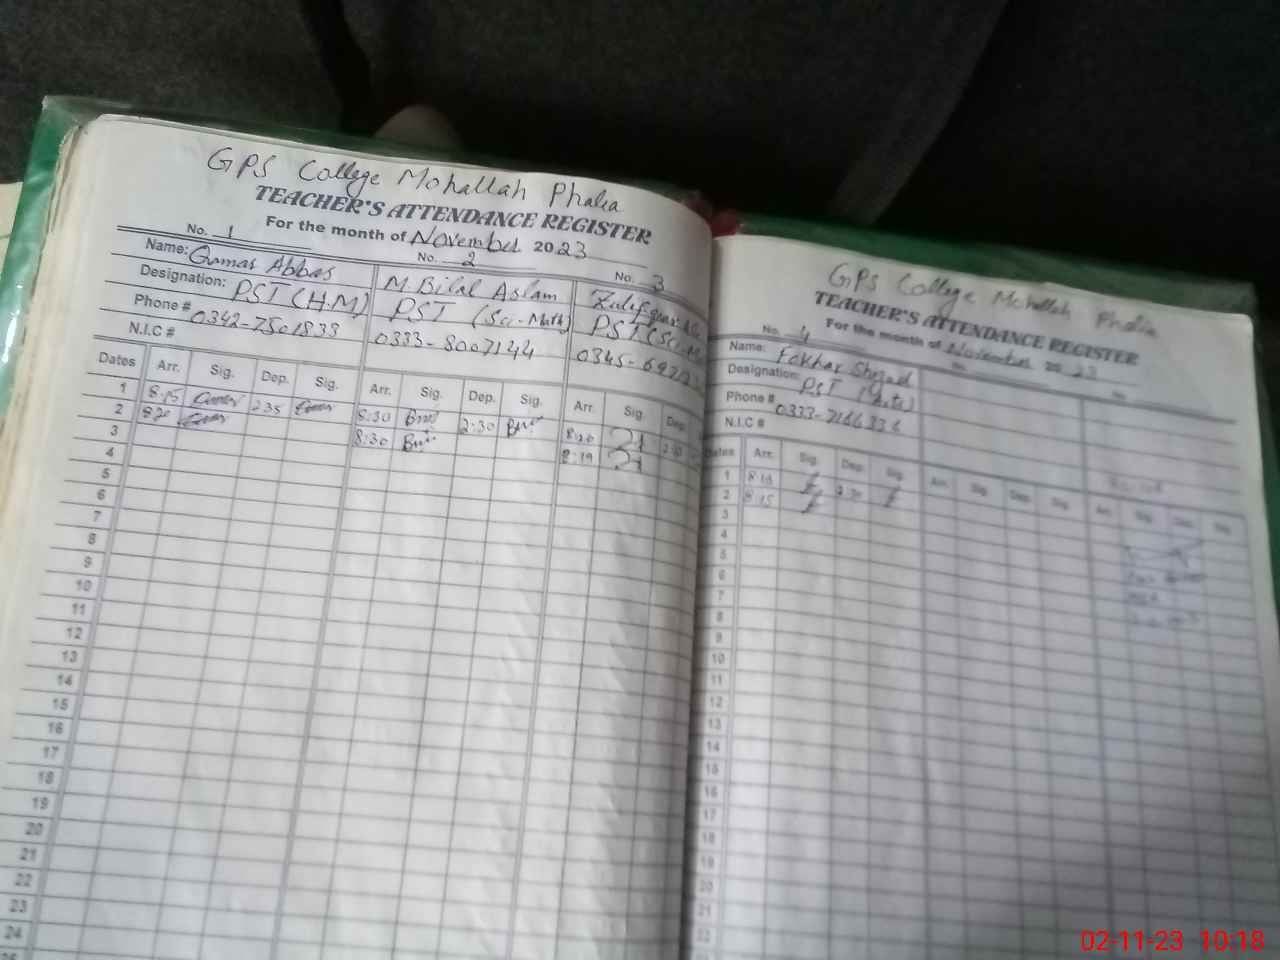 GPS College Mohallah Phalia
TEACHER'S ATTENDANCE REGISTER
For the month of November 2023
No. 1 No. 2 No. 3
Name: Qamar Abbas M. Bilal Aslam Zulifqar
Designation: PST (H.M) PST (Sci-Math) PST (Sci-M
Phone # 0342-7501833 0333-8007144 0345-697
N.I.C #
Dates Arr. Sig. Dep. Sig. Arr. Sig. Dep. Sig. Arr. Sig. Dep
1 8:15 2:35 8:30 2:30 8:20
2 8:20 8:30 8:19
3
4
5
6
7
8
9
10
11
12
13
14
15
16
17
18
19
20
21
22
23
24
25
GPS College Mohallah Phalia
TEACHER'S ATTENDANCE REGISTER
For the month of November 2023
No. 4 No. No.
Name: Fakhar Shezad
Designation: PST (Arts)
Phone # 0333-
N.I.C #
Dates Arr. Sig. Dep. Sig. Arr. Sig. Dep. Sig. Arr. Sig. Dep. Sig.
1 8:15 2:30
2 8:15
3
4
5
6
7
8
9
10
11
12
13
14
15
16
17
18
19
20
21
22
02-11-23 10:18